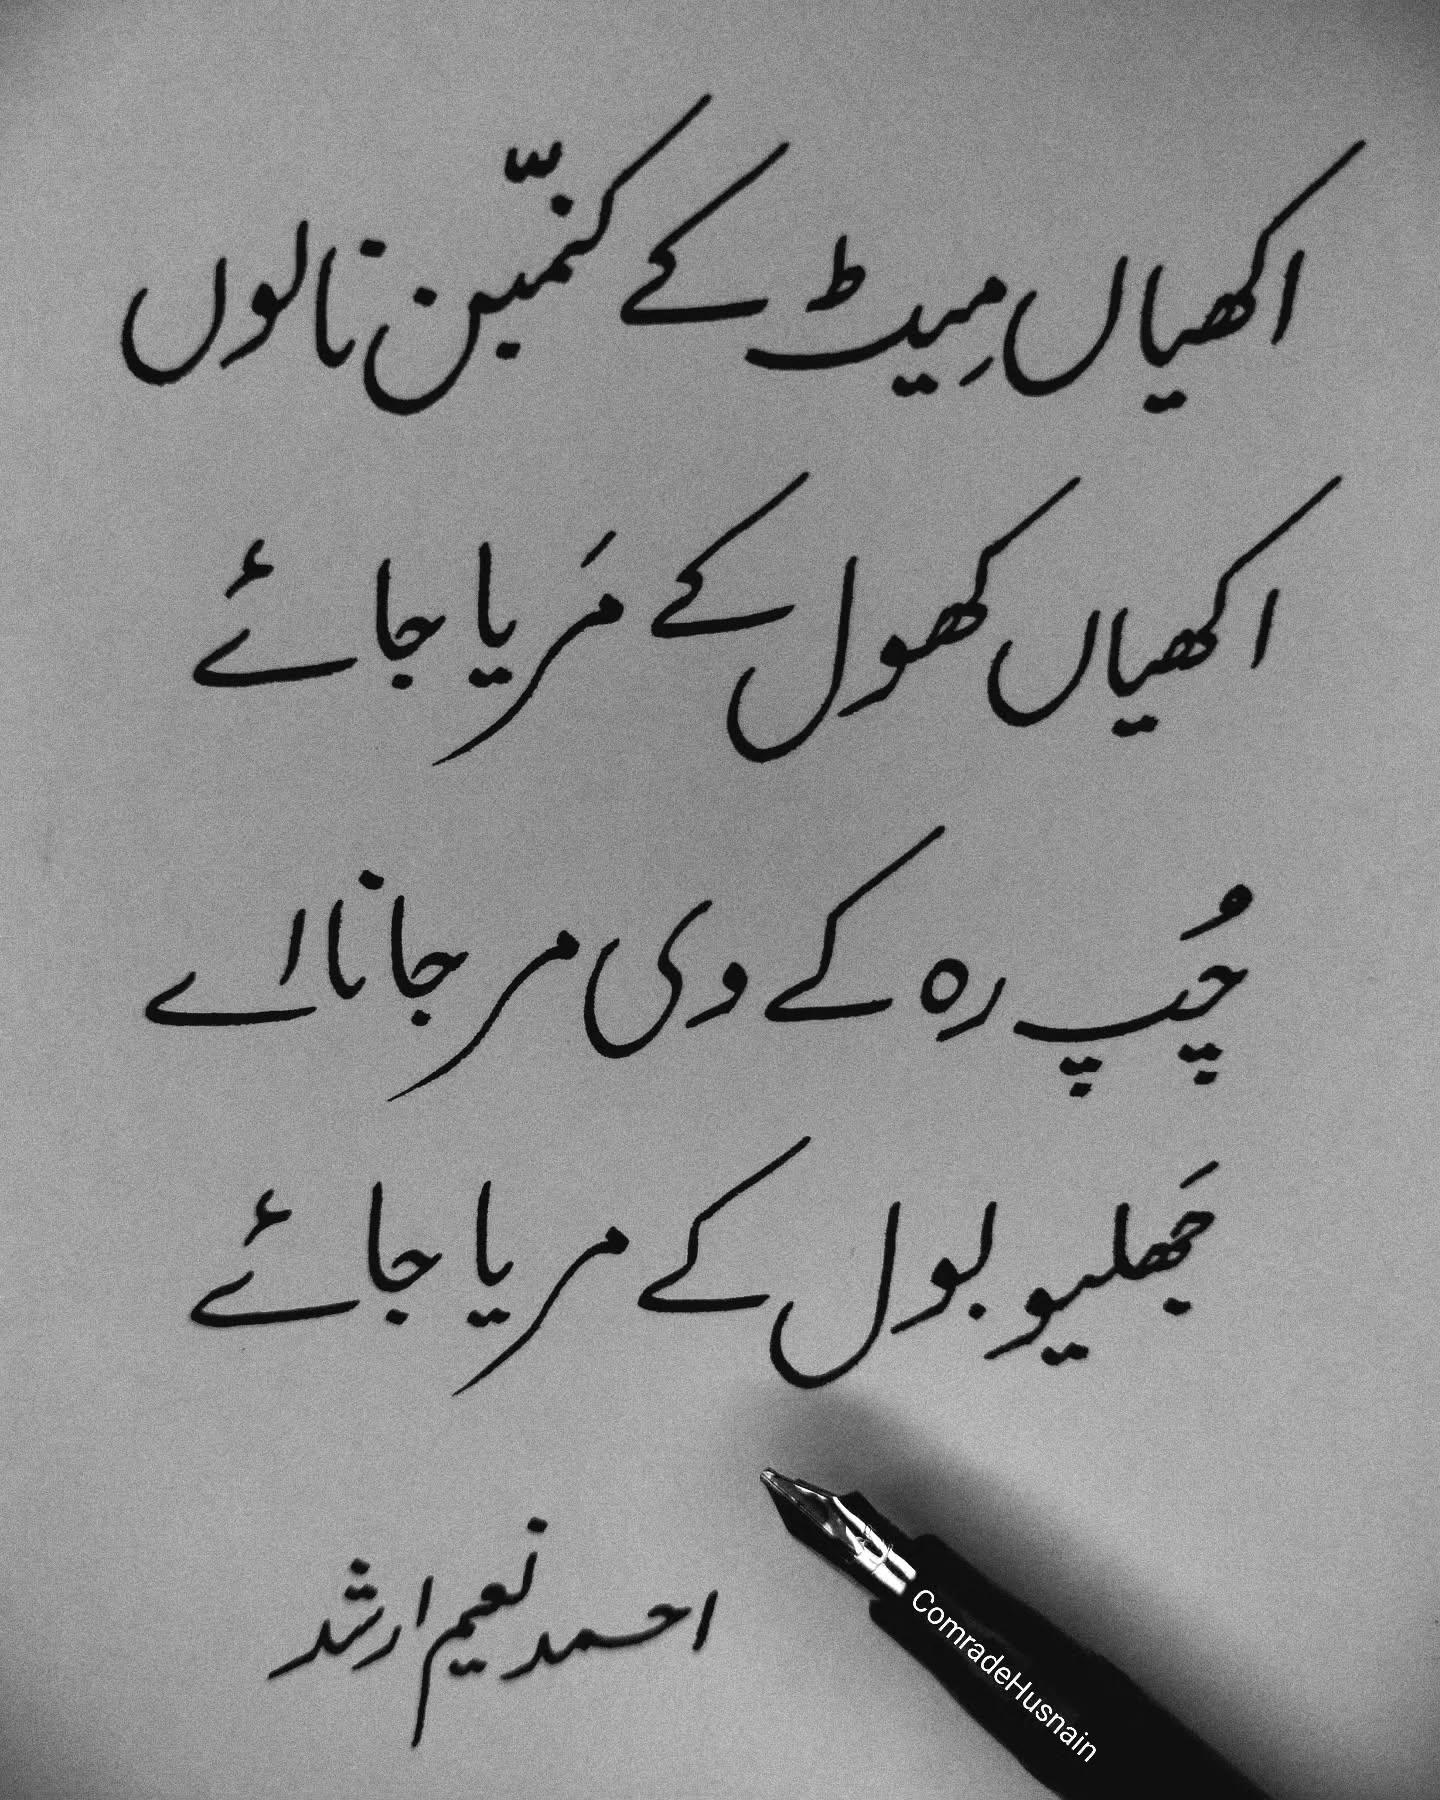 اکھیاں مِیٹ کے کنمّبن نالوں
اکھیاں کھول کے مَریا جائے
چُپ رہ کے وی مر جانا اے
جَھلیو بول کے مریا جائے
احمد نعیم ارشد
ComradeHusnain